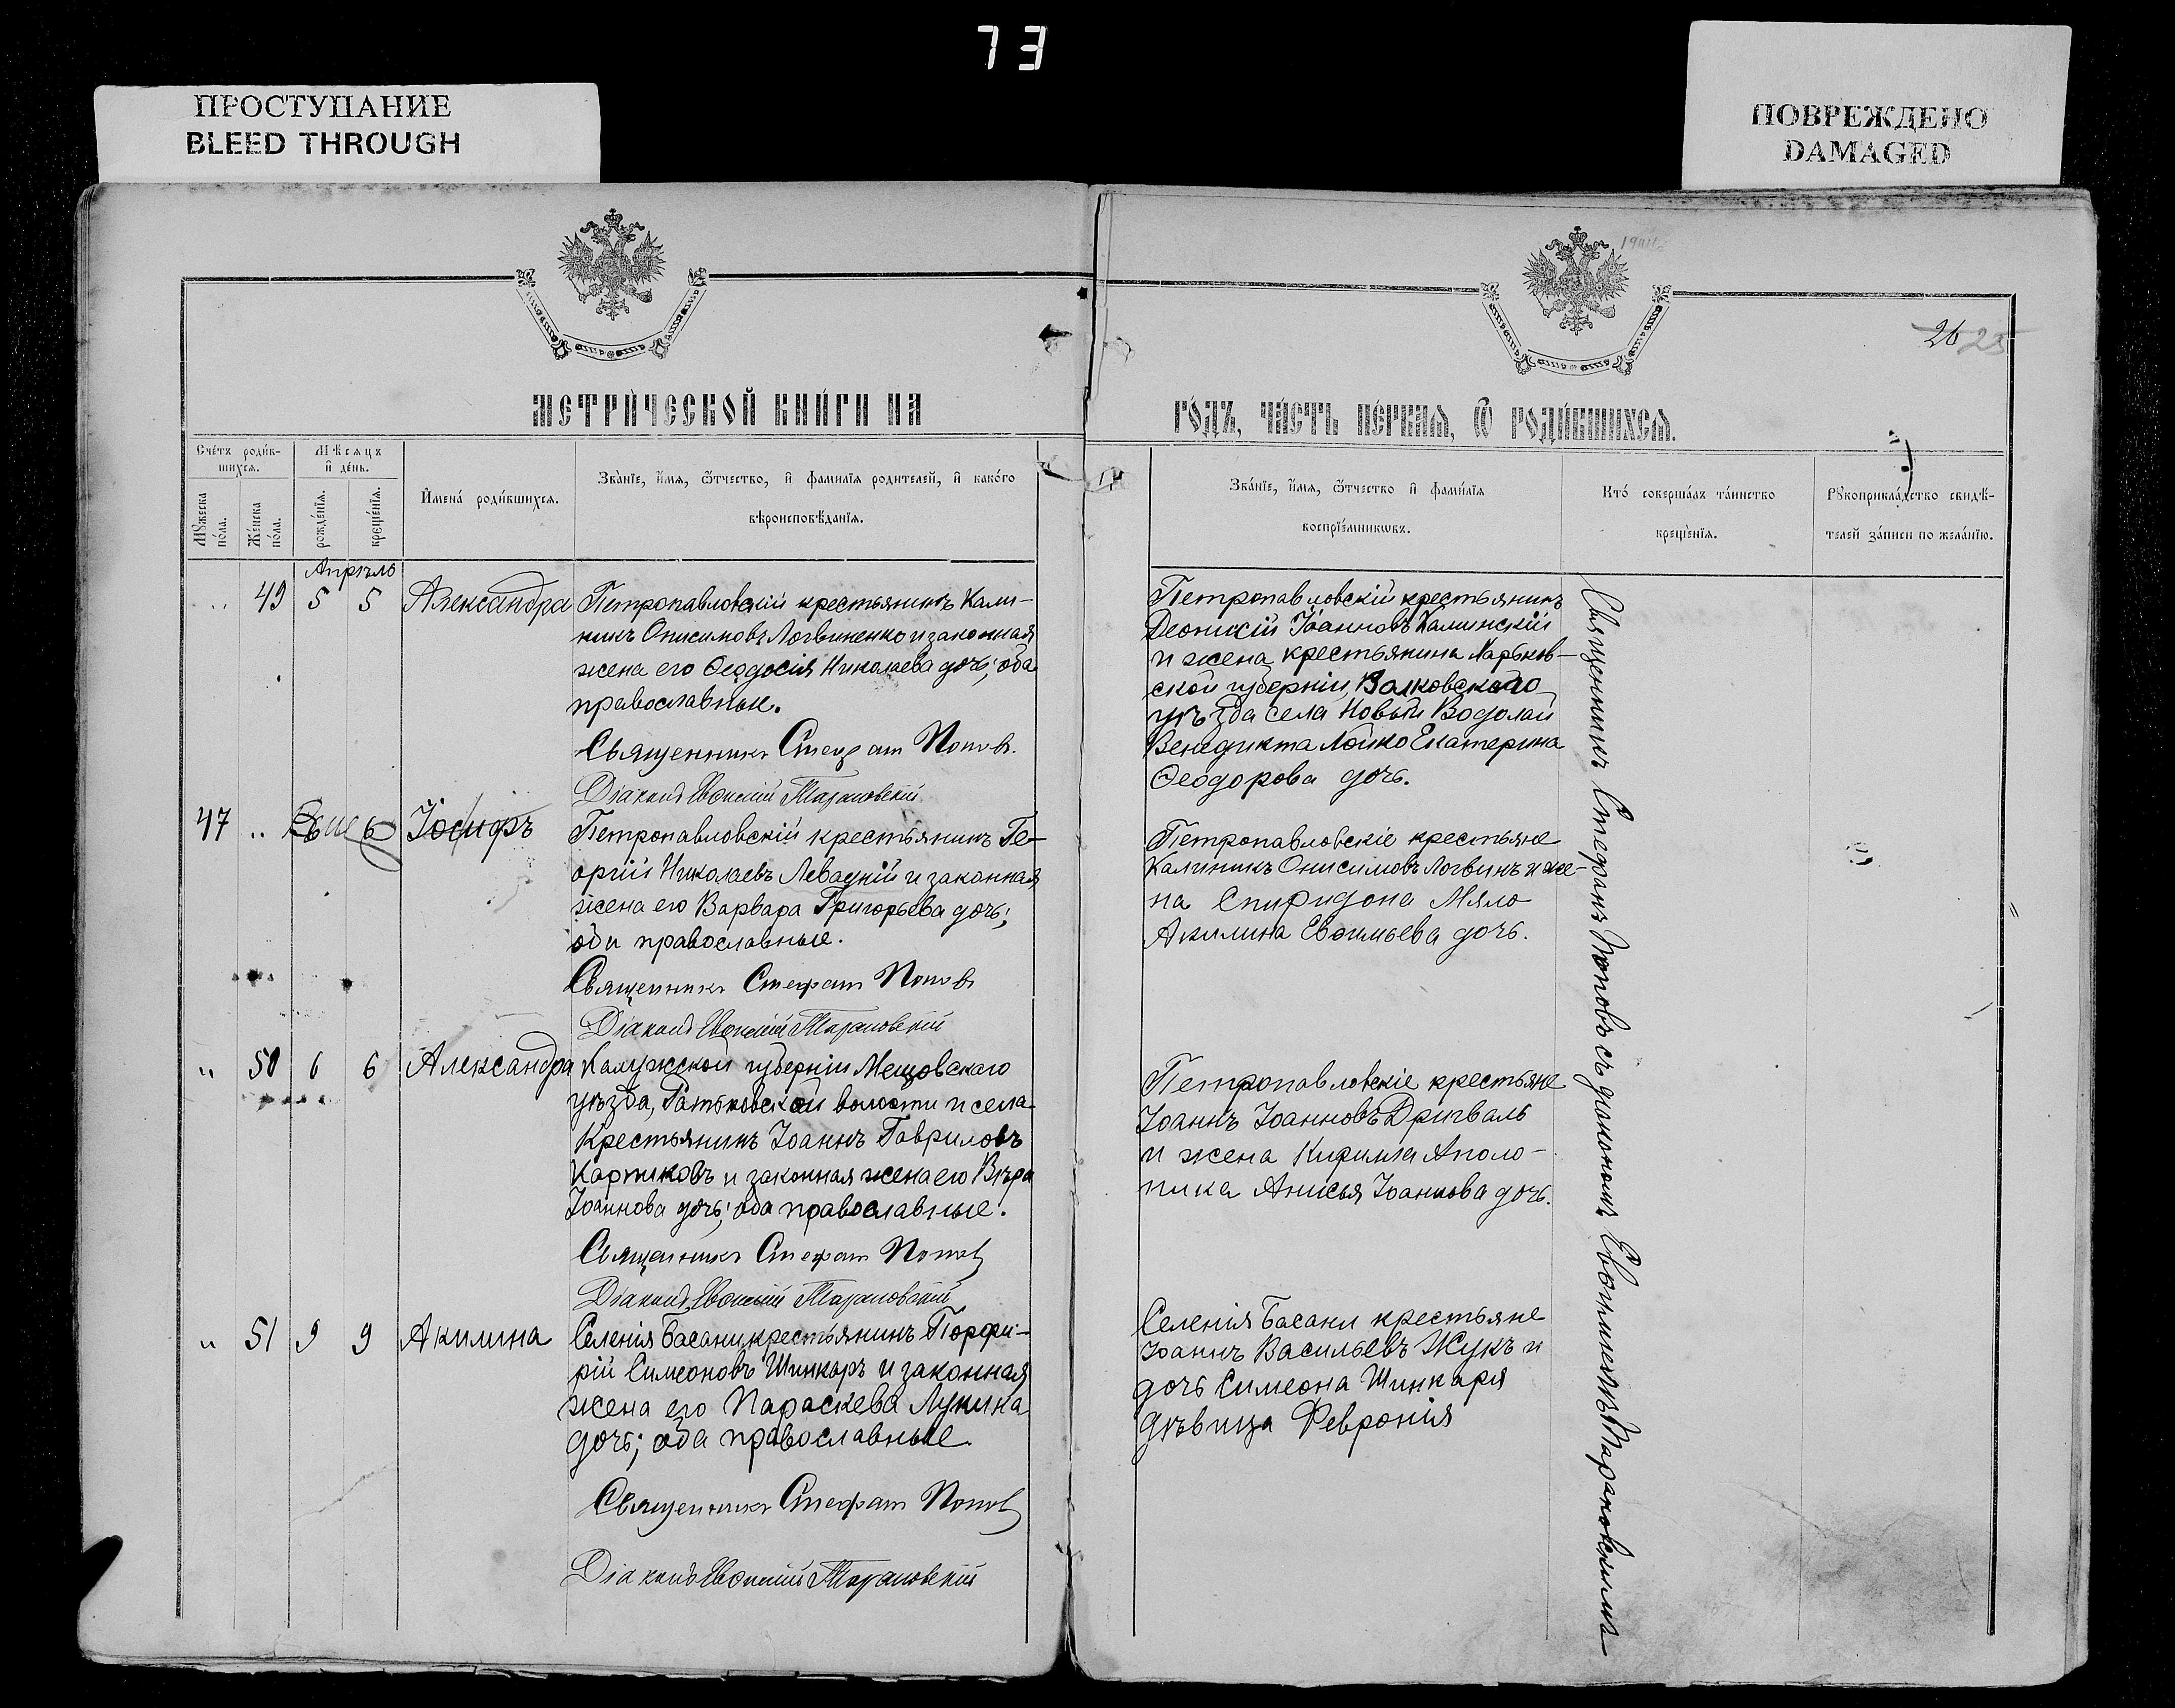 73
ПРОСТУПАНИЕ
BLEED THROUGH
ПОВРЕЖДЕНО
DAMAGED
26 25
МЕТРИ́ЧЕСКОЙ КНИ́ГИ НА
ГО́ДЪ, ЧА́СТЬ ПЕ́РВАЯ, Ѡ РОДИ́ВШИХСЯ.
Сче́тъ роди́в-
шихся.
Мѣсяцъ
и де́нь.
Му́жеска
по́ла.
Же́нска
по́ла.
рожде́нїя.
креще́нїя.
Имена́ роди́вшихся.
Зва́нїе, и́мя, ѻ́тчество, и фамилїя родителей, и како́го
вѣроисповѣ́данїя.
Зва́нїе, и́мя, ѻ́тчество и фами́лїя
воспрїе́мниковъ.
Кто́ соверша́лъ та́инство
креще́нїя.
Рукоприкла́дство свидѣ́-
телей за́писи по жела́нїю.
Апрѣль
.. 49 5 5 Александра
Петропавловскій крестьянинъ Кали-
никъ Онисимовъ Логвиненко и законная
жена его Ѳеодосія Николаева дочь; оба
православные.
Священникъ Стефанъ Поповъ.
Діаконъ Евѳимій Тарановскій
Петропавловскій крестьянинъ
Іоанновъ Калинскій
и жена крестьянина Харьков-
ской губерніи, Валковскаго
уѣзда села Новый Водолаи
Венедикта Лойко Екатерина
Ѳеодорова дочь.
47 .. 6 6 Іосифъ
Петропавловскій крестьянинъ Ге-
оргій Николаевъ Левадній и законная
жена его Варвара Григорьева дочь;
оби православные.
Священникъ Стефанъ Поповъ
Діаконъ Евѳимій Тарановскій
Петропавловскіе крестьяне
Калиникъ Онисимовъ Логвинъ и же-
на Спиридона Мяло
Акилина Евѳимьева дочь.
" 50 6 6 Александра
Калужской губерніи Мещовскаго
уѣзда, волости и села
крестьянинъ Іоаннъ Гавриловъ
Картиковъ и законная жена его Вѣра
Іоаннова дочь; оба православные.
Священникъ Стефанъ Поповъ
Діаконъ Евѳимій Тарановскій
Петропавловскіе крестьяне
Іоаннъ Іоанновъ Дригваль
и жена Кирилла Аполо-
ника Анисья Іоаннова дочь.
" 51 9 9 Акилина
Селенія Басани, крестьянинъ Порфи-
рій Симеоновъ Шинкарь и законная
жена его Параскева Лукина
дочь; оба православные.
Священникъ Стефанъ Поповъ
Діаконъ Евѳимій Тарановскій
Селенія Басани крестьяне
Іоаннъ Васильевъ Жукъ и
дочь Симеона Шинкаря
дѣвица Февронія
Священникъ Стефанъ Поповъ съ діакономъ Евѳиміемъ Тарановскимъ